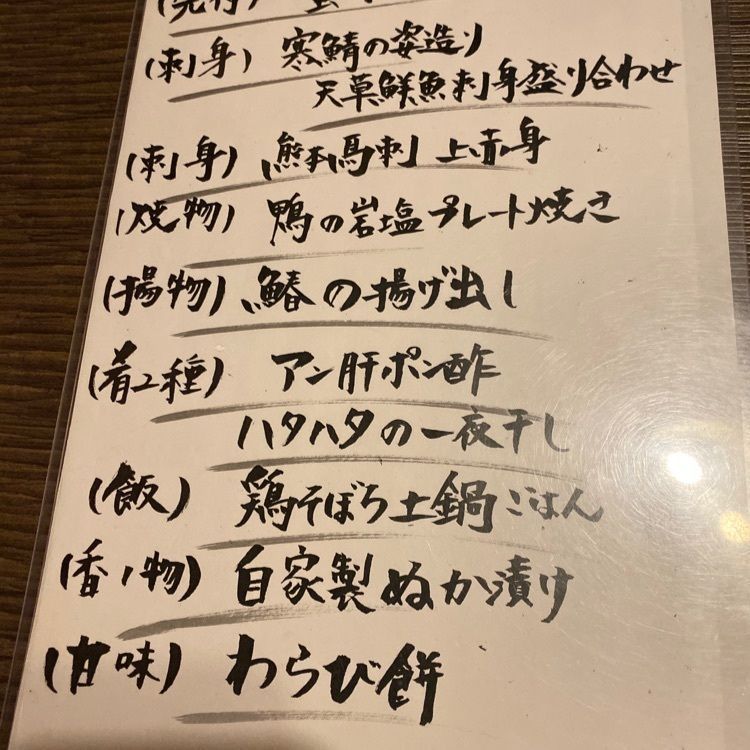 (先付)
(刺身) 寒鯖の姿造り
天草鮮魚刺身盛り合わせ
(刺身) 熊本馬刺 上赤身
(焼物) 鴨の岩塩プレート焼き
(揚物) 鰆の揚げ出し
(肴2種) アン肝ポン酢
ハタハタの一夜干し
(飯) 鶏そぼろ土鍋ごはん
(香ノ物) 自家製ぬか漬け
(甘味) わらび餅